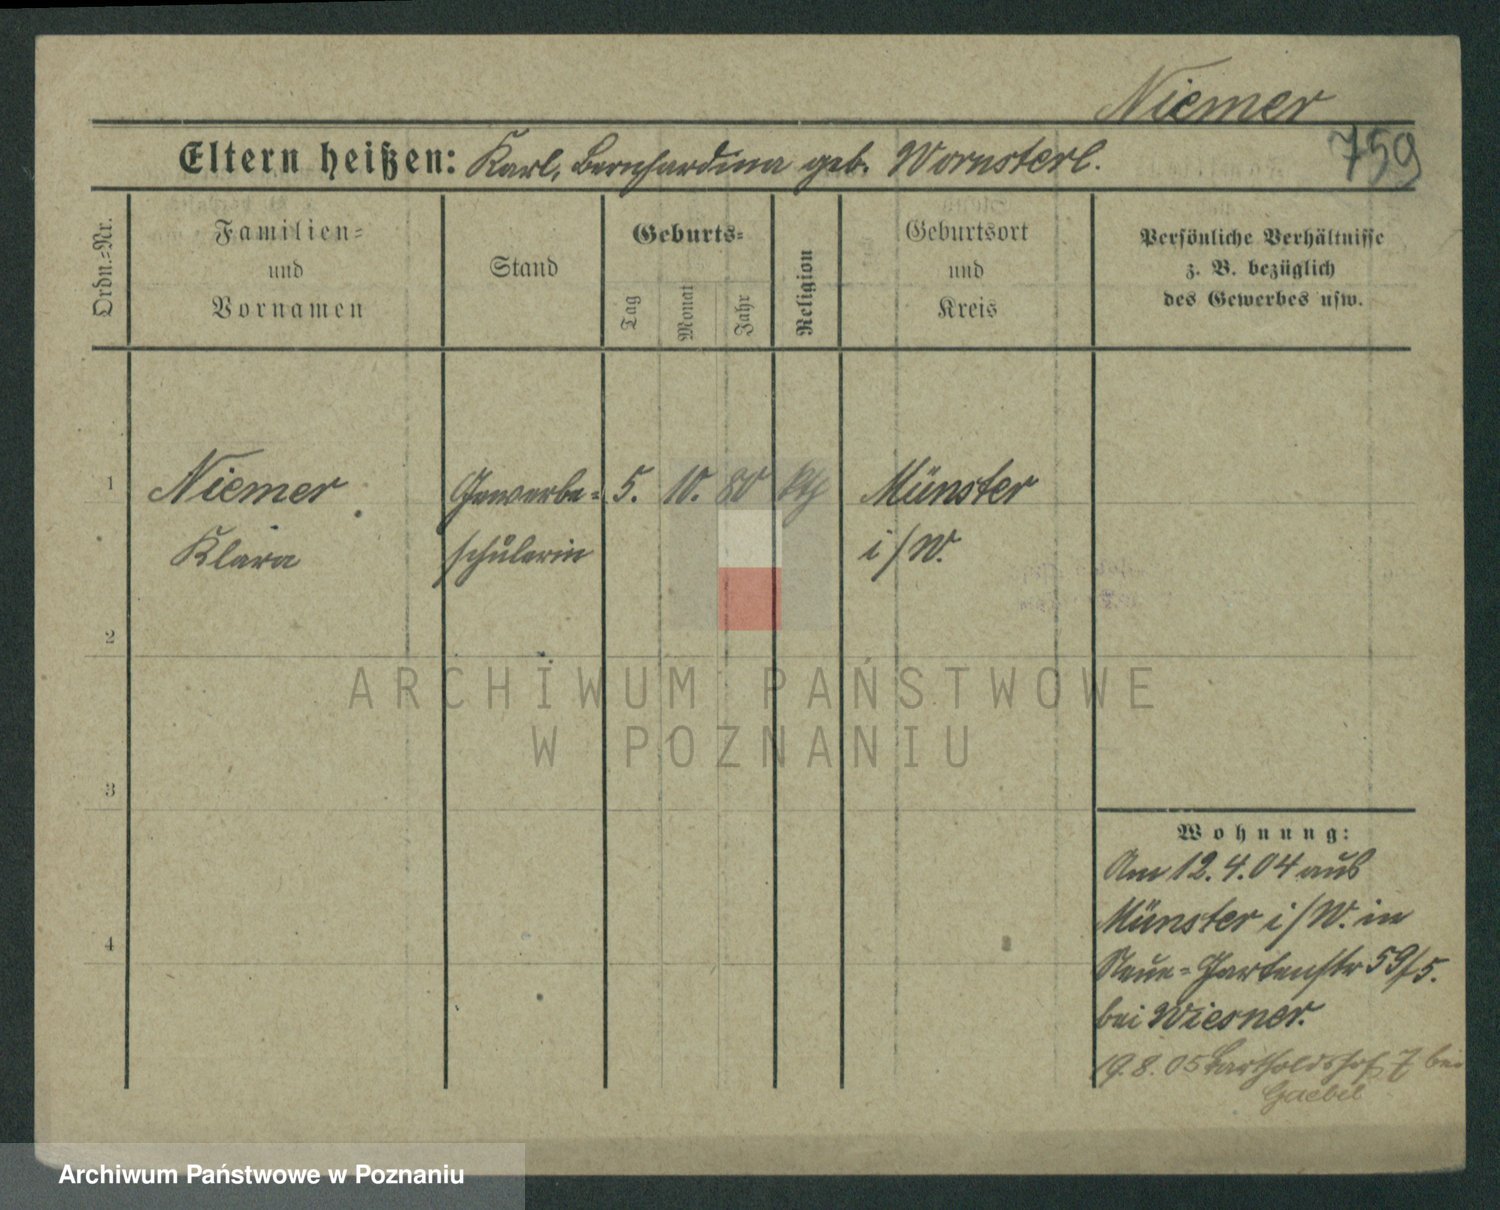 Niemer
759
Eltern heißen: Karl, Bernhardina geb. Wornsterl.
Ordn.=Nr.
Familien=
und
Vornamen
Stand
Geburts=
Tag
Monat
Jahr
Religion
Geburtsort
und
Kreis
Persönliche Verhältnisse
z. B. bezüglich
des Gewerbes usw.
1
Niemer
Klara
Gewerbe=
schülerin
5. 10. 80
kth
Münster
i/W.
2
3
4
ARCHIWUM PAŃSTWOWE
W POZNANIU
Wohnung:
Am 12.4.04 aus
Münster i/W. in
Neue=Gartenstr 59/5.
bei Wiesner.
19.8.05 Bartholdshof 7 bei
Gaebel
Archiwum Państwowe w Poznaniu